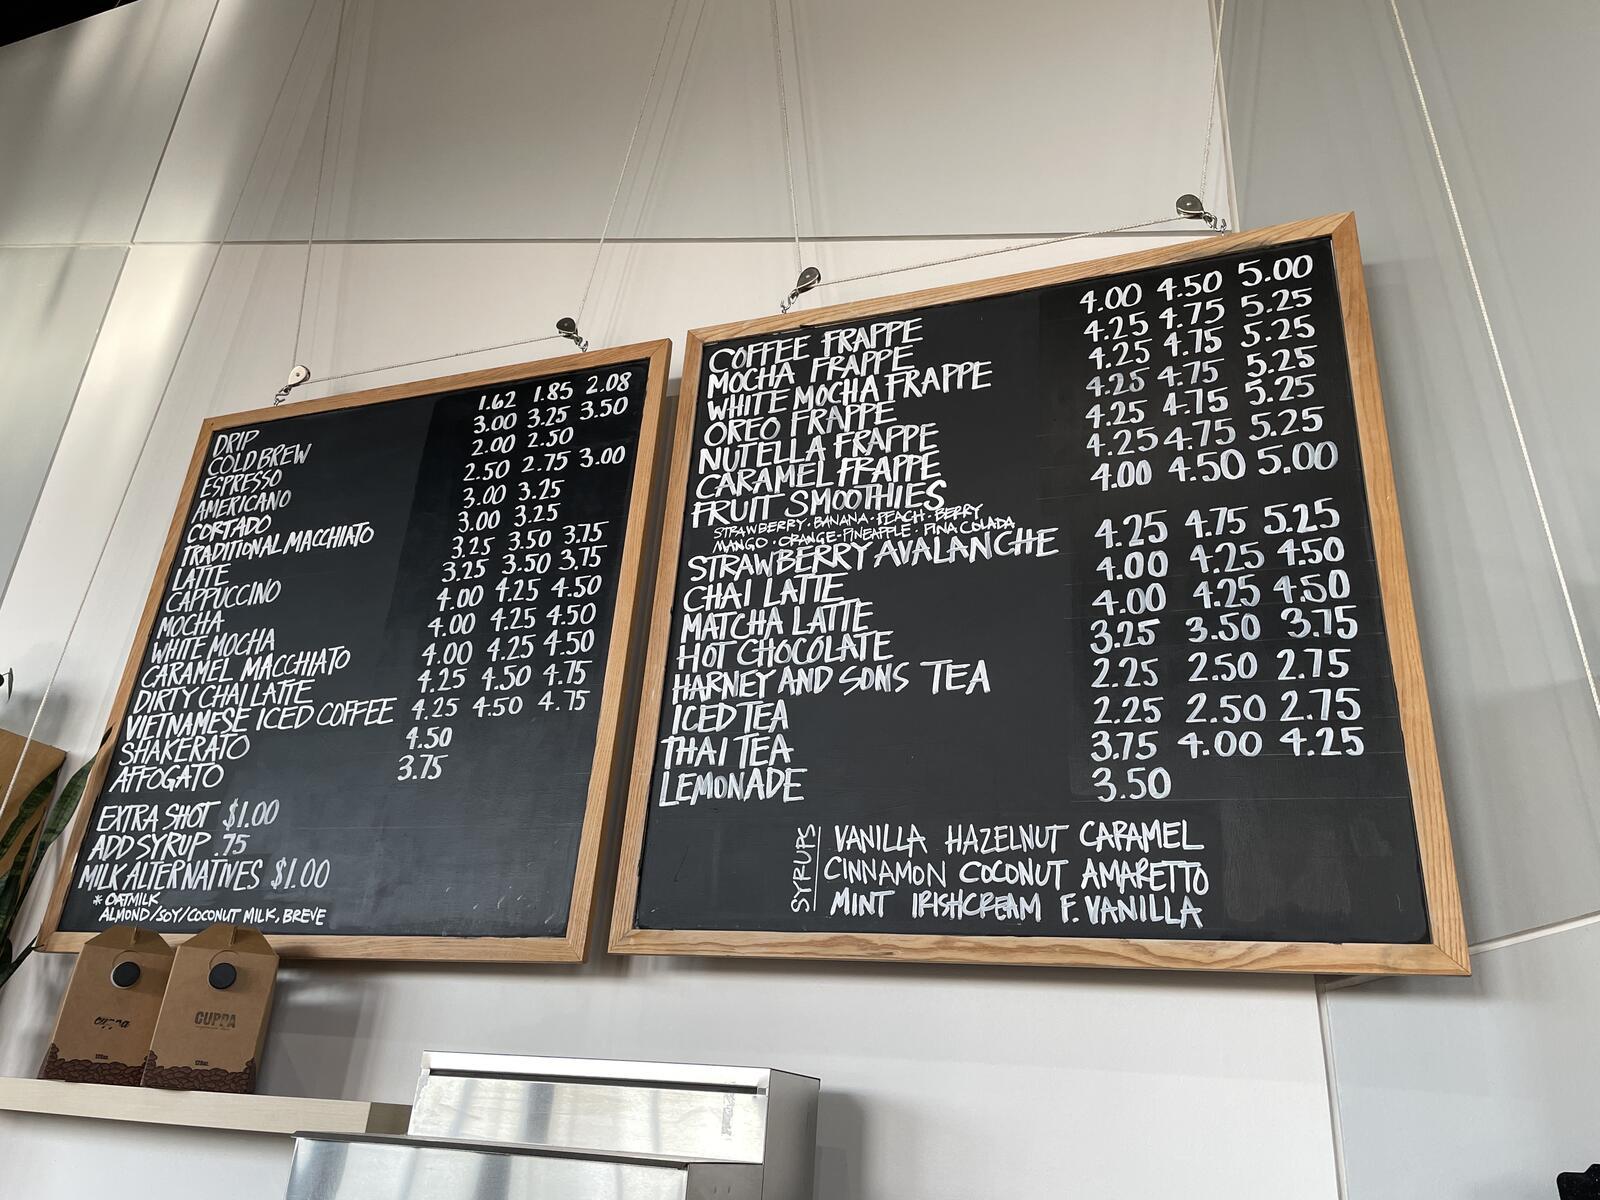 DRIP 1.62 1.85 2.08
COLD BREW 3.00 3.25 3.50
ESPRESSO 2.00 2.50
AMERICANO 2.50 2.75 3.00
CORTADO 3.00 3.25
TRADITIONAL MACCHIATO 3.00 3.25
LATTE 3.25 3.50 3.75
CAPPUCCINO 3.25 3.50 3.75
MOCHA 4.00 4.25 4.50
WHITE MOCHA 4.00 4.25 4.50
CARAMEL MACCHIATO 4.00 4.25 4.50
DIRTY CHAI LATTE 4.25 4.50 4.75
VIETNAMESE ICED COFFEE 4.25 4.50 4.75
SHAKERATO 4.50
AFFOGATO 3.75
EXTRA SHOT $1.00
ADD SYRUP .75
MILK ALTERNATIVES $1.00
* OATMILK
ALMOND/SOY/COCONUT MILK, BREVE
COFFEE FRAPPE 4.00 4.50 5.00
MOCHA FRAPPE 4.25 4.75 5.25
WHITE MOCHA FRAPPE 4.25 4.75 5.25
OREO FRAPPE 4.25 4.75 5.25
NUTELLA FRAPPE 4.25 4.75 5.25
CARAMEL FRAPPE 4.25 4.75 5.25
FRUIT SMOOTHIES 4.00 4.50 5.00
STRAWBERRY · BANANA · PEACH · BERRY
MANGO · ORANGE-PINEAPPLE · PINA COLADA
STRAWBERRY AVALANCHE 4.25 4.75 5.25
CHAI LATTE 4.00 4.25 4.50
MATCHA LATTE 4.00 4.25 4.50
HOT CHOCOLATE 3.25 3.50 3.75
HARNEY AND SONS TEA 2.25 2.50 2.75
ICED TEA 2.25 2.50 2.75
THAI TEA 3.75 4.00 4.25
LEMONADE 3.50
SYRUPS
VANILLA HAZELNUT CARAMEL
CINNAMON COCONUT AMARETTO
MINT IRISHCREAM F. VANILLA
cuppa
CUPPA